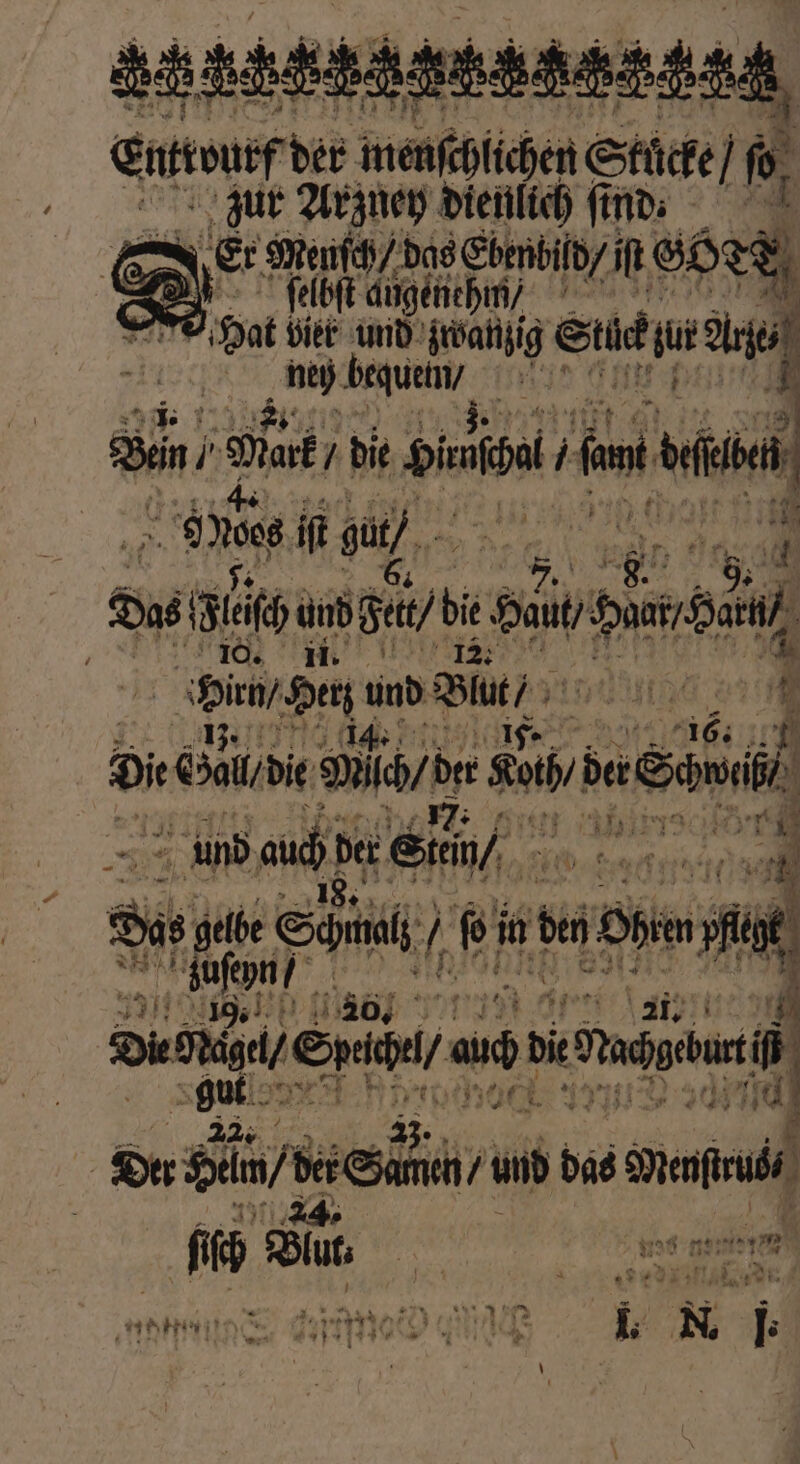 Entwurf der menſchlichen Stuͤcke / ſo
zur Arzney dienlich ſind.
DEr Menſch / das Ebenbild / iſt GOTT
ſelbſt angenehm /
Hat vier und zwanzig Stuͤck zur Arze⸗
ney bequem /
1. 2. 3.
Bein / Mark / die Hirnſchal / ſamt deſſelben
4.
Moos iſt gut /
5. 6. 7. 8. 9.
Das Fleiſch und Fett / die Haut / Haar / Harn /
10. 11. 12.
Hirn / Herz und Blut /
13. 14. 15. 16.
Die Gall / die Milch / der Koth / der Schweiß /
17.
und auch der Stein /
18.
Das gelbe Schmalz / ſo in den Ohren pflegt
zuſeyn /
19. 20. 21.
Die Naͤgel / Speichel / auch die Nachgeburt iſt
gut
22. 23.
Der Helm / der Samen / und das Menſtruoͤ⸗
24.
ſiſch Blut.
I. N. J.